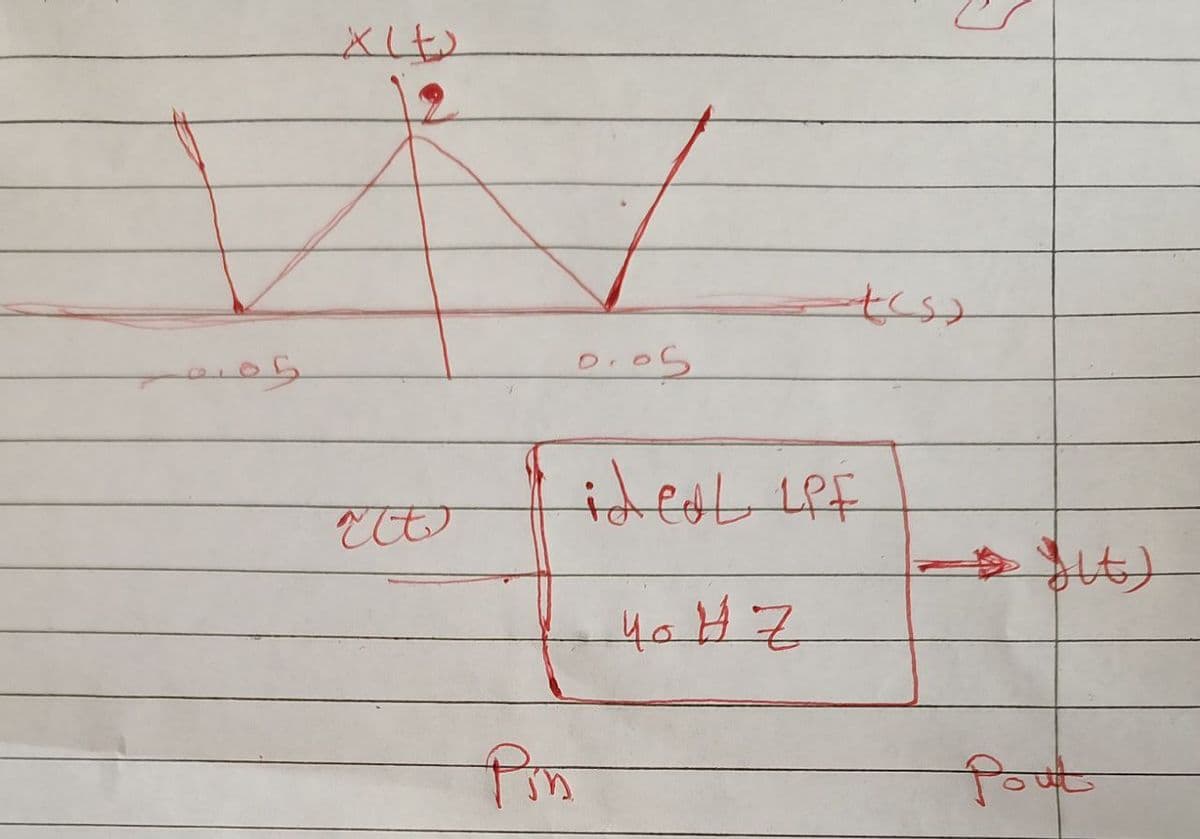 x(t)
2
t(s)
-0.05 0.05
ideal LPF
x(t)
y(t)
40 HZ
Pin Pout